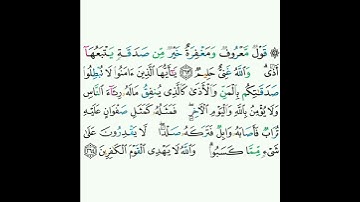 ۞ قَوْلٌ مَّعْرُوفٌ وَمَغْفِرَةٌ خَيْرٌ مِّن صَدَقَةٍ يَتْبَعُهَآ
أَذًى ۗ وَٱللَّهُ غَنِىٌّ حَلِيمٌ ۝٢٦٣ يَـٰٓأَيُّهَا ٱلَّذِينَ ءَامَنُوا۟ لَا تُبْطِلُوا۟
صَدَقَـٰتِكُم بِٱلْمَنِّ وَٱلْأَذَىٰ كَٱلَّذِى يُنفِقُ مَالَهُۥ رِئَآءَ ٱلنَّاسِ
وَلَا يُؤْمِنُ بِٱللَّهِ وَٱلْيَوْمِ ٱلْـَٔاخِرِ ۖ فَمَثَلُهُۥ كَمَثَلِ صَفْوَانٍ عَلَيْهِ
تُرَابٌ فَأَصَابَهُۥ وَابِلٌ فَتَرَكَهُۥ صَلْدًا ۖ لَّا يَقْدِرُونَ عَلَىٰ
شَىْءٍ مِّمَّا كَسَبُوا۟ ۗ وَٱللَّهُ لَا يَهْدِى ٱلْقَوْمَ ٱلْكَـٰفِرِينَ ۝٢٦٤